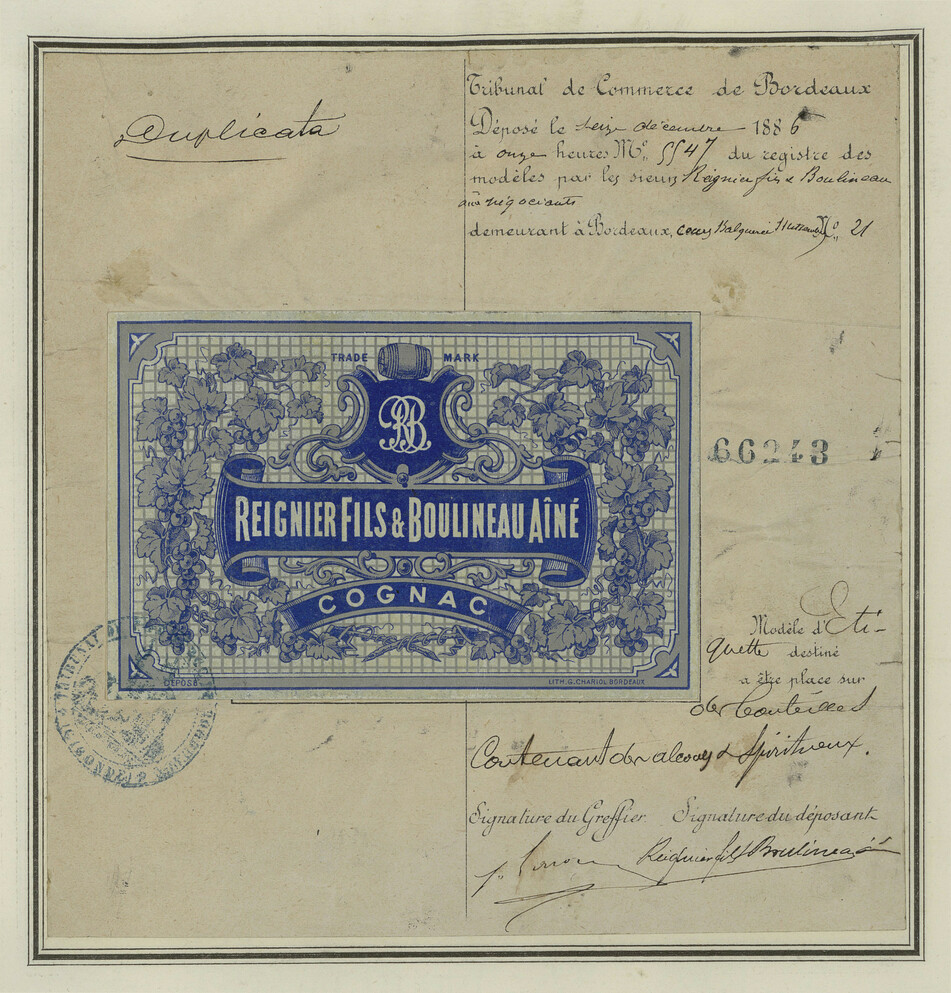 Duplicata
Tribunal de Commerce de Bordeaux
Déposé le seize décembre 1886
à onze heures No. 5547 du registre des
modèles par les sieurs Reignier fils & Boulineau
aîné négociants
demeurant à Bordeaux, cours Balguerie No. 21
TRADE MARK
RB
REIGNIER FILS & BOULINEAU AÎNÉ
COGNAC
DÉPOSÉ
LITH. G. CHARIOL BORDEAUX
66243
TRIBUNAL
(GIRONDE)
Modèle d'Eti-
quette destiné
a être place sur
des bouteilles
Contenant des alcools & Spiritueux.
Signature du Greffier Signature du déposant
Reignier fils Boulineau